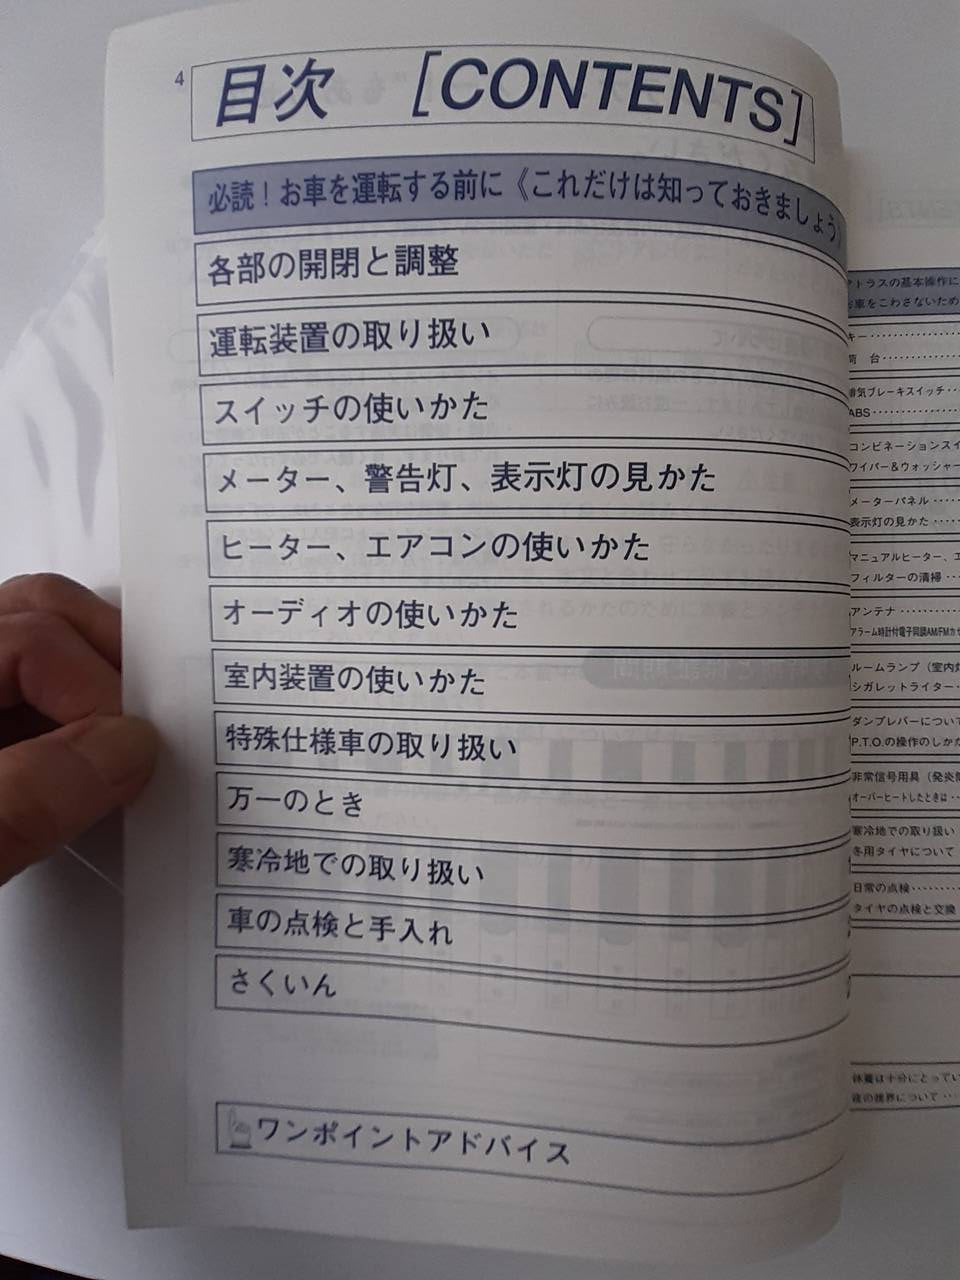 4
目次 [CONTENTS]
必読!お車を運転する前に《これだけは知っておきましょう》
各部の開閉と調整
運転装置の取り扱い
スイッチの使いかた
メーター、警告灯、表示灯の見かた
ヒーター、エアコンの使いかた
オーディオの使いかた
室内装置の使いかた
特殊仕様車の取り扱い
万一のとき
寒冷地での取り扱い
車の点検と手入れ
さくいん
ワンポイントアドバイス
アトラスの基本操作に
お車をこわさないため
キー
荷 台
排気ブレーキスイッチ
ABS
コンビネーションスイ
ワイパー&ウォッシャー
メーターパネル
表示灯の見かた
マニュアルヒーター、エ
フィルターの清掃
アンテナ
アラーム時計付電子同調AM/FMカセ
ルームランプ(室内灯
シガレットライター
ダンプレバーについ
P.T.O.の操作のしか
非常信号用具(発炎筒
オーバーヒートしたときは
寒冷地での取り扱い
冬用タイヤについて
日常の点検
タイヤの点検と交換
休養は十分にとってい
夜の視界について